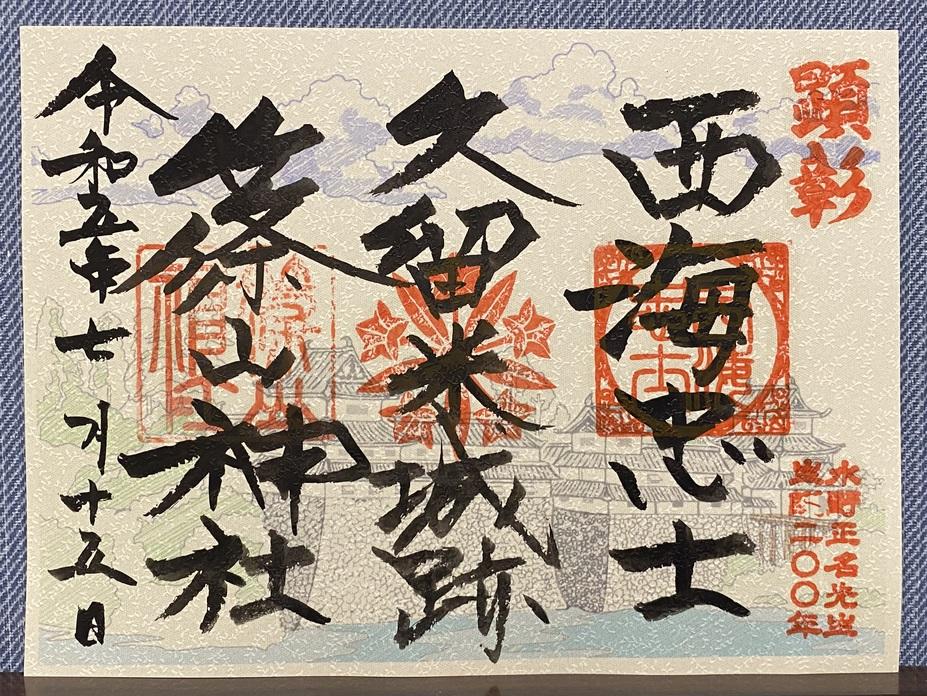 顕彰
水野正名先生
生誕二〇〇年
西海志士
久留米城跡
篠山神社
令和五年七月十五日